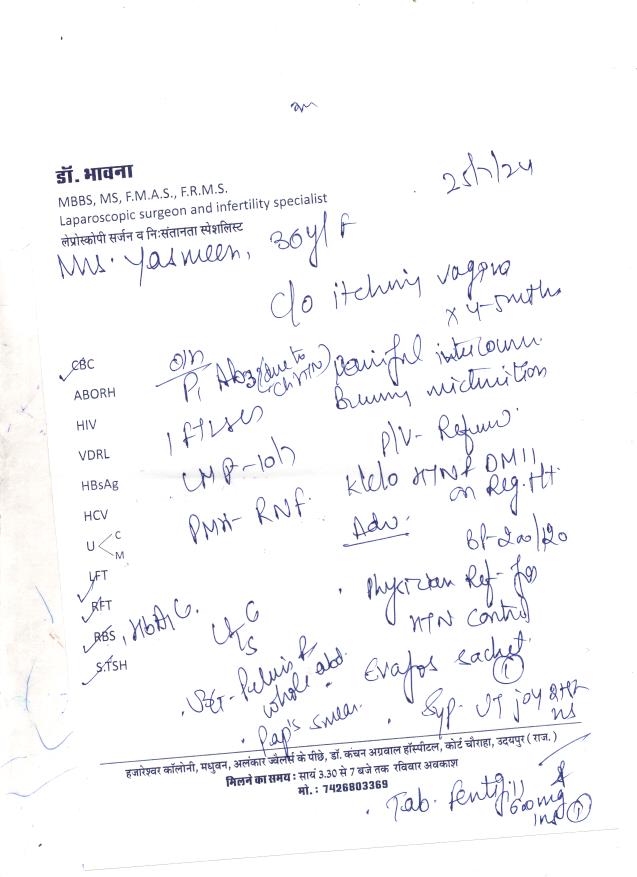 डॉ. भावना
MBBS, MS, F.M.A.S., F.R.M.S.
Laparoscopic surgeon and infertility specialist
लेप्रोस्कोपी सर्जन व निःसंतानता स्पेशलिस्ट
25/7/24
Mrs. Yasmeen, 36y/F
c/o itching vagina
x 4-5mths
painful intercourse
Burning micturition
CBC
ABORH
HIV
VDRL
HBsAg
HCV
U C
M
LFT
RFT
RBS, HbA1C.
S.TSH
O/H
P1 Ab3 (due to
Ch HTN)
1 FTLSCS
LMP - 10/7
PMH - RNF.
P/V - Refused
K/c/o HTN & DM II
on Reg. Htt.
Adv.
BP - 200/120
U C
S
. Physician Ref - for
HTN control
. USG - Pelvis &
whole abd.
. Pap's smear.
. Evafos sachet 1
. Syp. UTjoy
हजारेश्वर कॉलोनी, मधुवन, अलंकार ज्वैलर्स के पीछे, डॉ. कंचन अग्रवाल हॉस्पीटल, कोर्ट चौराहा, उदयपुर (राज.)
मिलने का समय : सायं 3.30 से 7 बजे तक रविवार अवकाश
मो. : 7426803369
. Tab. Fentiji
600mg
1